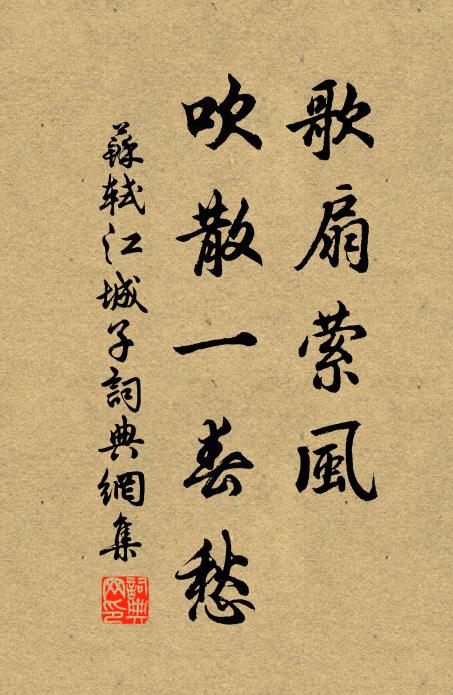 歌扇萦風
吹散一春愁
蘇軾江城子詞典網集
詞典网印